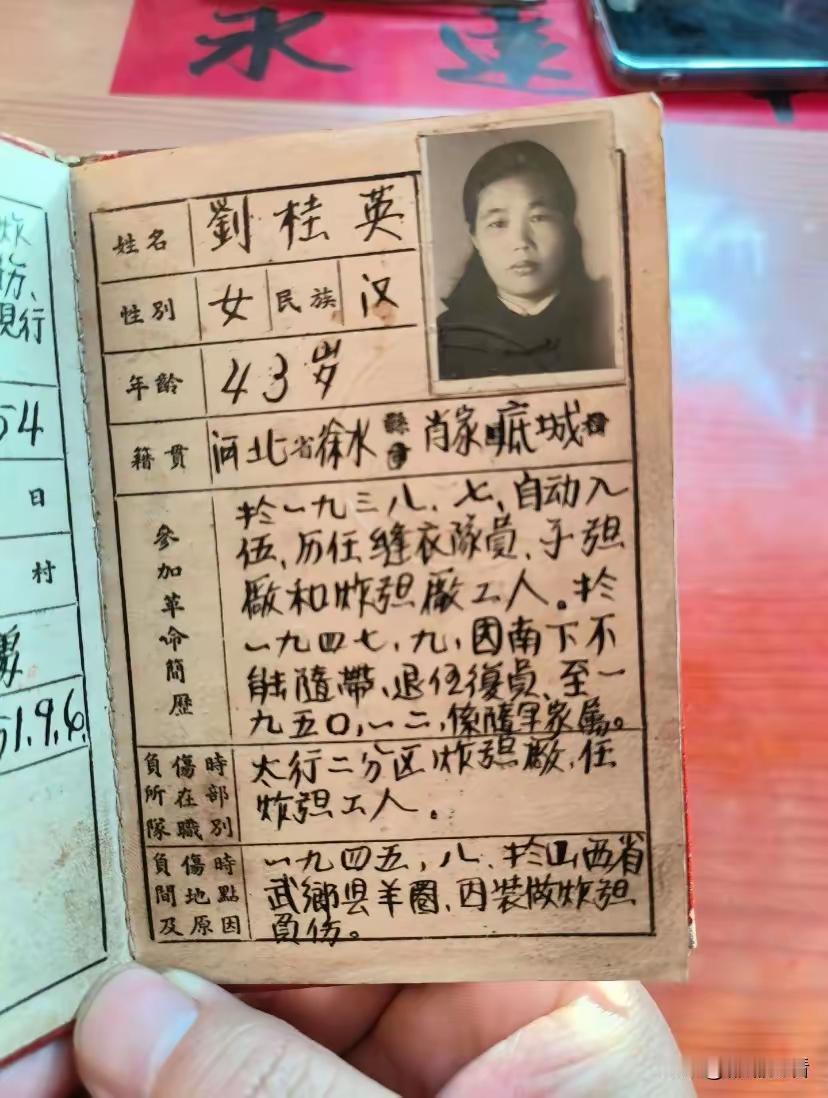 永遠
炸
份、
現行
54
日
村
51.9.6.
姓名 劉桂英
性别 女 民族 汉
年齡 43岁
籍貫 河北省徐水縣 肖家 城村
參加革命簡歷
於一九三八、七、自动入
伍、历任缝衣隊員、子弹
厰和炸弹厰工人。於
一九四七、九、因南下不
能隨帶、退伍復員、至一
九五〇、一二、係隨军家属。
負傷時
所在部
隊職别
太行二分区炸弹厰、任
炸弹工人。
負傷時
間地點
及原因
一九四五、八、於山西省
武鄉县羊圈、因装做炸弹
負伤。